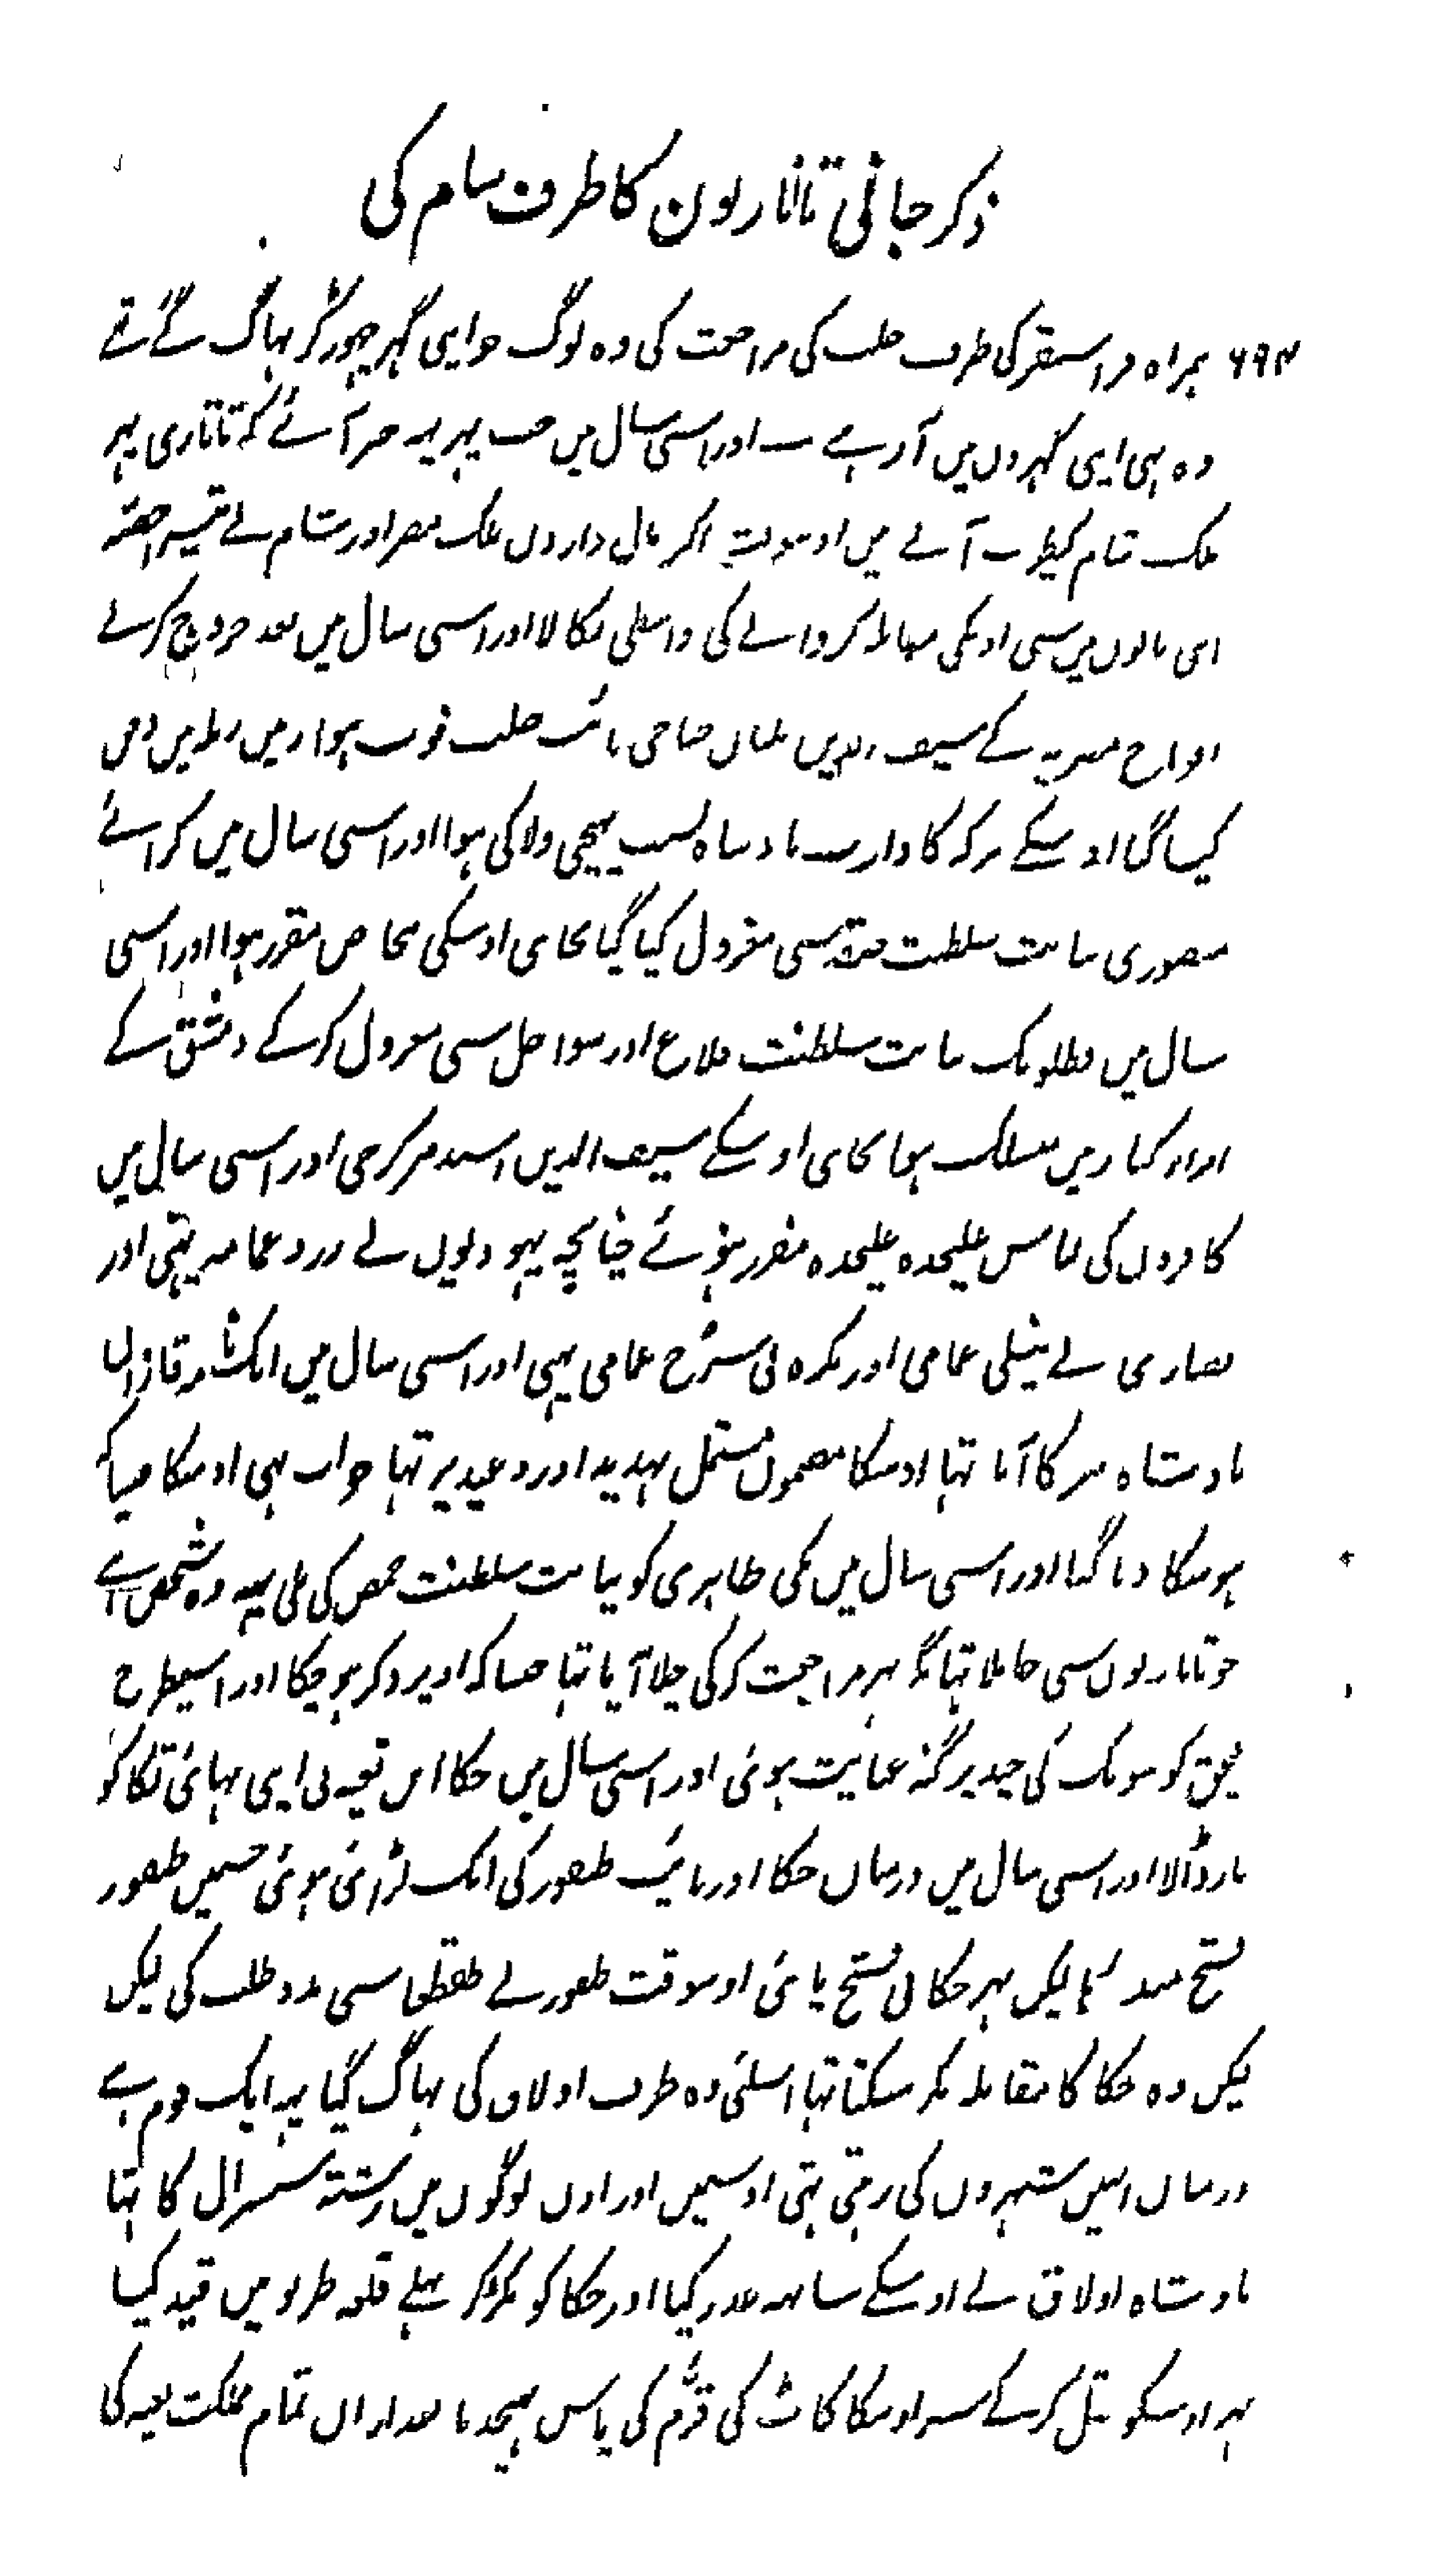 ذکر جانی تاتاریون کا طرف شام کی
۶۹۴ ہمراہ قراسنقر کی طرف حلب کی مراجعت کی وہ لوگ جو اپنی گہر چہوڑ کر بہاگ گئے تہے
وہ بہی اپنی گہروں میں آرہے اور اسی سال میں جب پہر یہ خبر آئے کہ تاتاری پہر
ملک شام کیطرف آتے ہیں اوسوقت اکثر مال داروں ملک مصر اور شام نے تیسرا حصہ
اپنی مالوں میں سی اونکی سپاہ کروانے کی واسطی نکالا اور اسی سال میں بعد خروج کرنے
افواج مصریہ کے سیف الدین بلبان طباخی نائب حلب فوت ہوا رملہ میں دفن
کیا گیا اوسکے ترکہ کا وارث بادشاہ بسبب ولا کی ہوا اور اسی سال میں کرائے
منصوری نیابت سلطنت صفد سی معزول کیا گیا بجای اوسکی بتخاص مقرر ہوا اور اسی
سال میں قطلوبک نیابت سلطنت قلاع اور سواحل سی معزول کرکے دمشق کے
امراء کبار میں منسلک ہوا بجای اوسکے سیف الدین اسندمر کرجی اور اسی سال میں
کافروں کی لباس علیحدہ علیحدہ مقرر ہوئے چنانچہ یہودیوں نے زرد عمامہ پہنی اور
نصاری نے نیلی عمامی اور سمرہ نی سرخ عمامی پہنی اور اسی سال میں ایک نامہ قازان
بادشاہ تتر کا آیا تہا اوسکا مضمون مشتمل تہدید اور وعید پر تہا جواب بہی اوسکا جیسا کہ
ہوسکا دیا گیا اور اسی سال میں بکی ظاہری کو نیابت سلطنت حمص کی ملی یہہ وہ شخص ہے
جو تاتاریوں سی جا ملا تہا مگر پہر مراجعت کرکی چلا آیا تہا جیسا کہ اوپر ذکر ہوچکا اور اسیطرح
کو شوبک کی چند پرگنہ عنایت ہوئی اور اسی سال میں جکا ابن نغیہ نی اپنی بہائی تکا کو
مار ڈالا اور اسی سال میں درمیان جکا اور نائب طغور کی ایک لڑائی ہوئی جسمیں طغور
فتحمند لیکن پہر جکا نی فتح پائی اوسوقت طغور نے طقطغا سی مدد طلب کی لیکن
لیکن وہ جکا کا مقابلہ نکر سکتا تہا اسلئی وہ طرف اولاق کی بہاگ گیا یہہ ایک قوم ہے
درمیان انہیں شہروں کی رہتی تہی اوسمیں اور اون لوگوں میں رشتہ سسرال کا تہا
بادشاہ اولاق نے اوسکے ساتہہ غدر کیا اور جکا کو پکڑکر پہلے قلعہ طرنو میں قید کیا
پہر اوسکو قتل کرکے سر اوسکا کاٹ کی قرم کی پاس بہیجدیا بعد ازاں تمام مملکت نغیہ کی